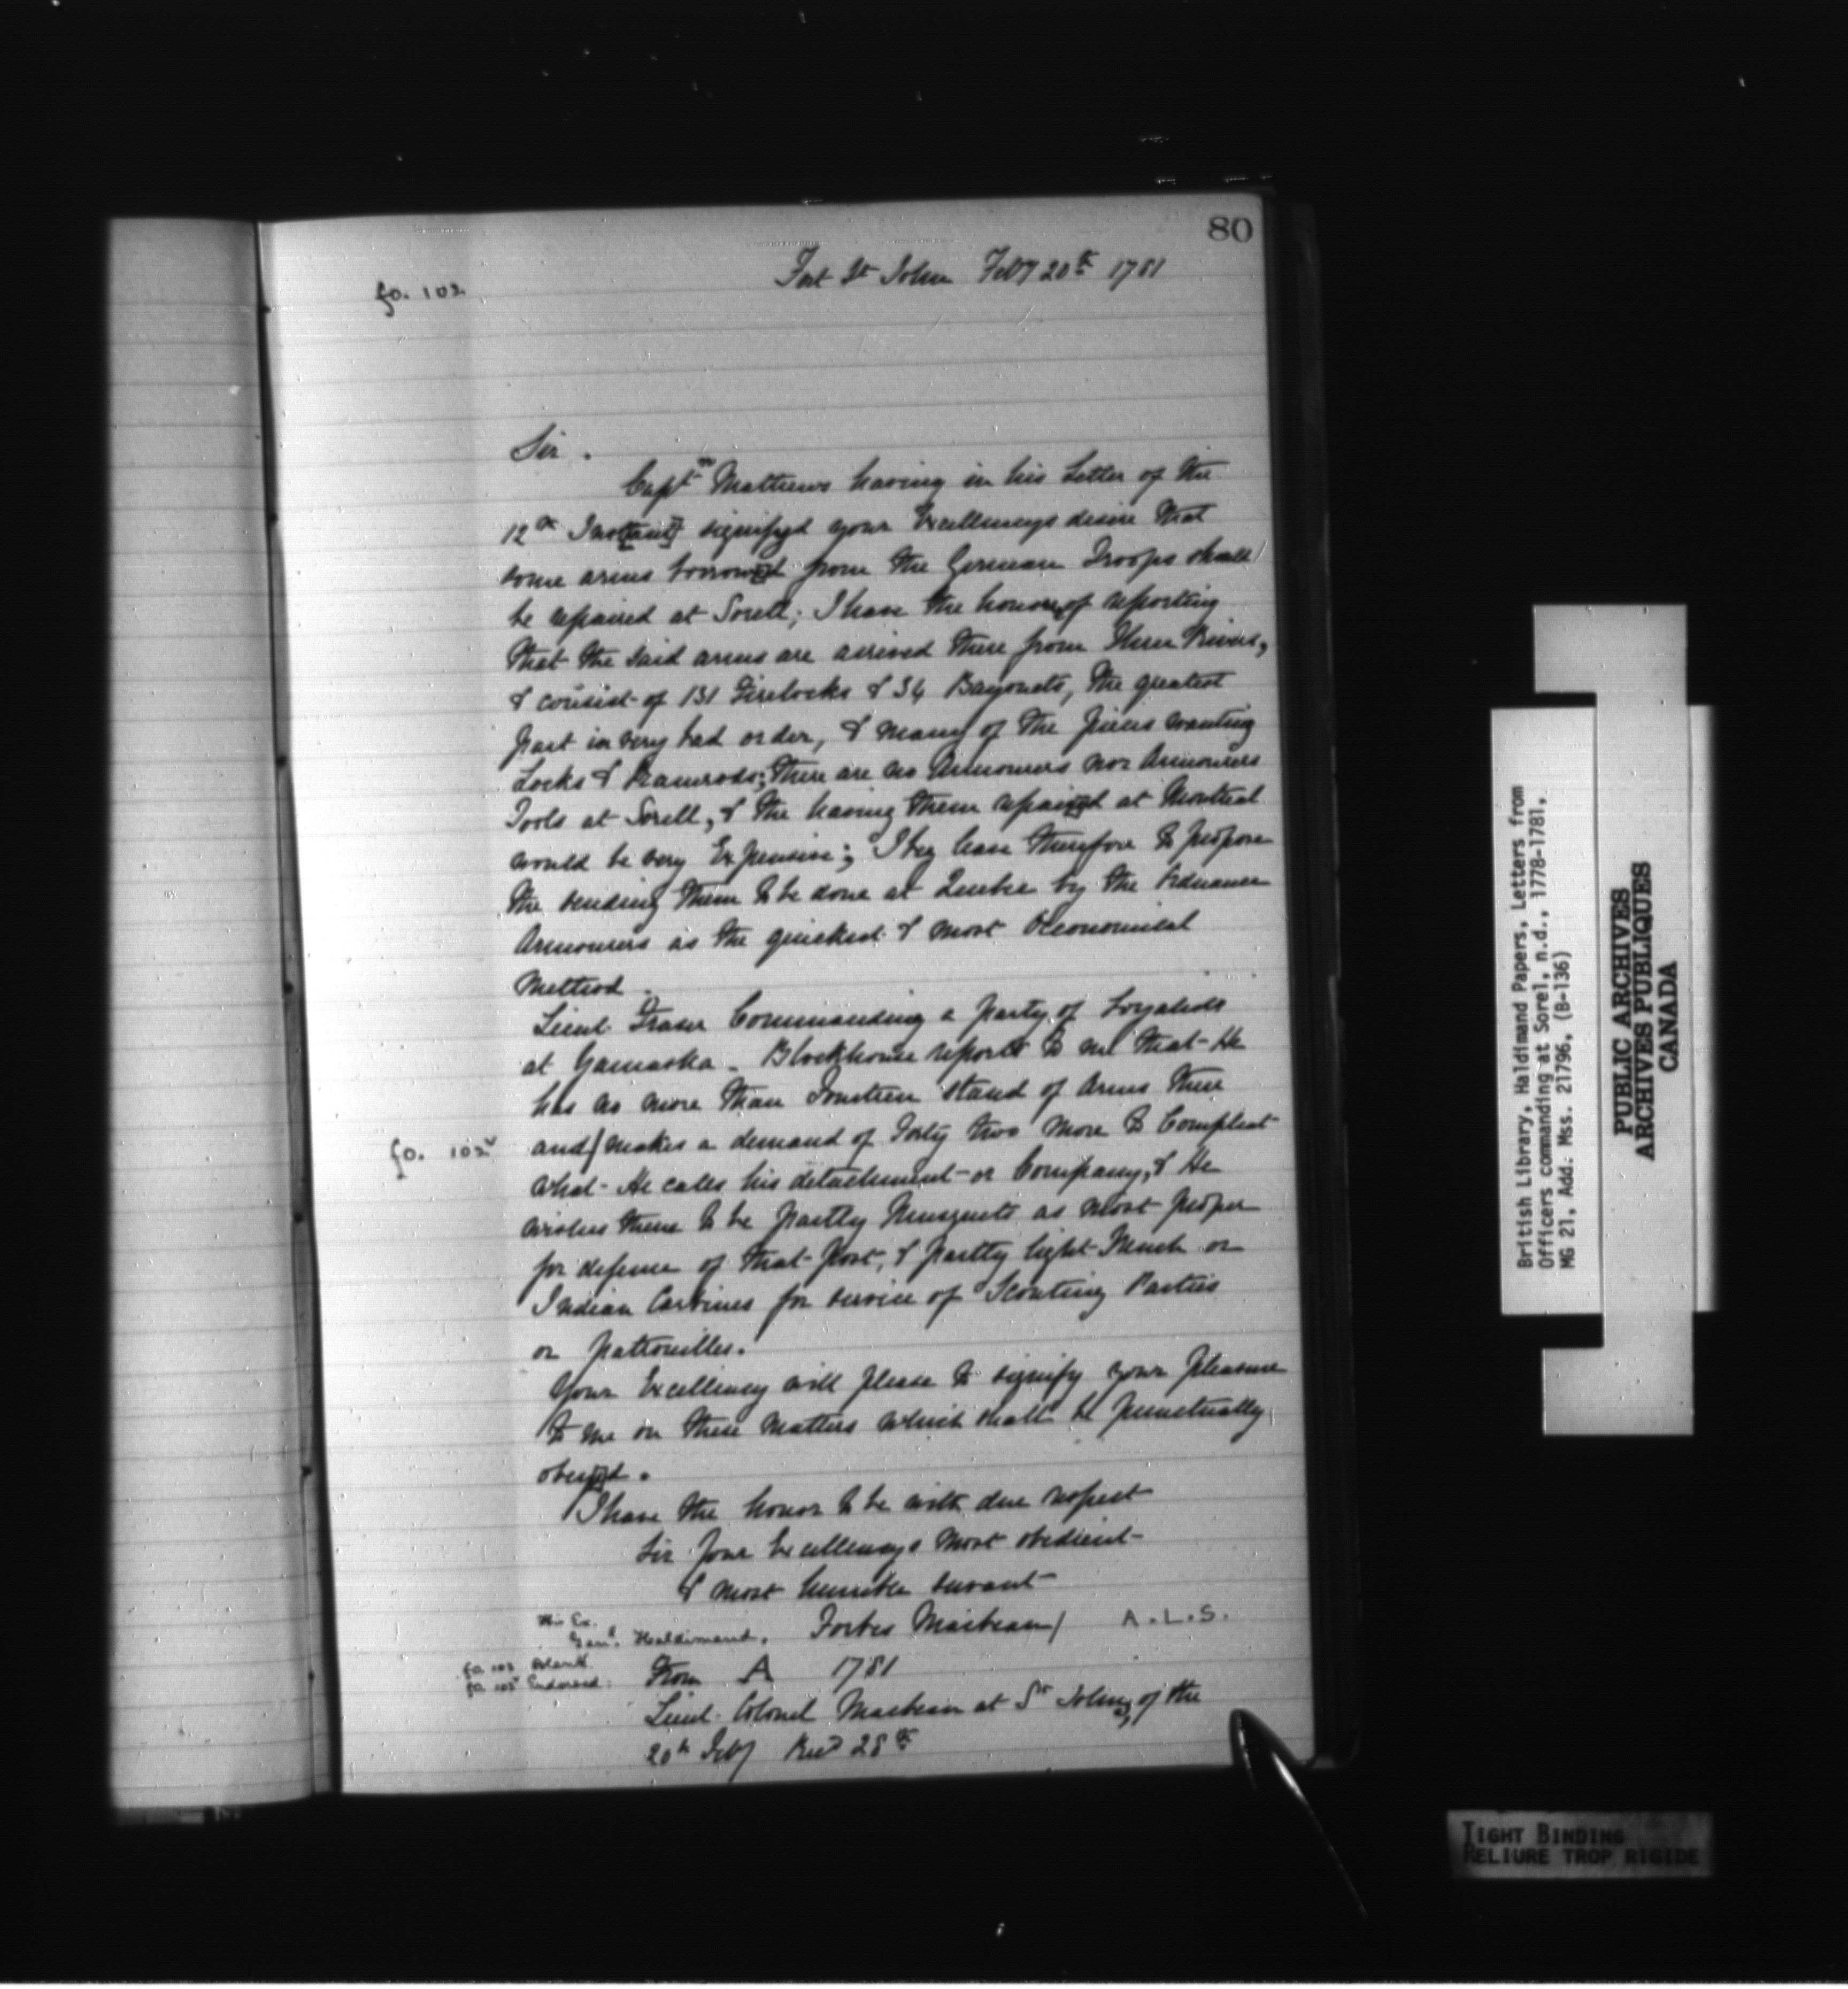 80
fo. 102.
Fort St John Feby 20th 1781
Sir.
Captn Mathews having in his Letter of the
12th Inst[ant] signifyd your Excellencys desire that
some arms borrow[e]d from the German Troops shall
be repaired at Sorell; I have the honor of reporting
that the said arms are arrived there from Three Rivers,
& consist of 131 Firelocks & 34 Bayonets, the greatest
part in very bad order, & many of the pieces wanting
Locks & Ramrods; there are no Armourers nor Armourers
Tools at Sorell, & the having them repair[e]d at Montreal
would be very Expensive; I beg leave therefore to propose
the sending them to be done at Quebec by the Ordnance
Armourers as the quickest & most Oeconomical
Method.
Lieut. Fraser Commanding a party of Loyalists
at Yamaska - Blockhouse reports to me that He
has no more than Fourteen Stand of Arms there
fo. 102v
and/ makes a demand of Forty two more to Compleat
what He calls his detachment or Company, & He
wishes them to be partly Musquets as most proper
for defence of that post, & partly light French or
Indian Carbines for service of Scouting Parties
or pattrouilles.
Your Excellency will please to signify your pleasure
to me on these Matters which shall be punctually
obey[e]d.
I have the honor to be with due respect
Sir Your Excellencys most obedient
& most humble servant
His Ex.
Genl. Haldimand. Forbes Macbean/ A.L.S.
fo. 103 blank.
fo. 103v Endorsed: From A 1781
Lieut. Colonel Macbean at St Johns, of the
20th Feby Recd 28th
British Library, Haldimand Papers, Letters from
Officers commanding at Sorel, n.d., 1778-1781,
MG 21, Add. Mss. 21796, (B-136)
PUBLIC ARCHIVES
ARCHIVES PUBLIQUES
CANADA
TIGHT BINDING
RELIURE TROP RIGIDE